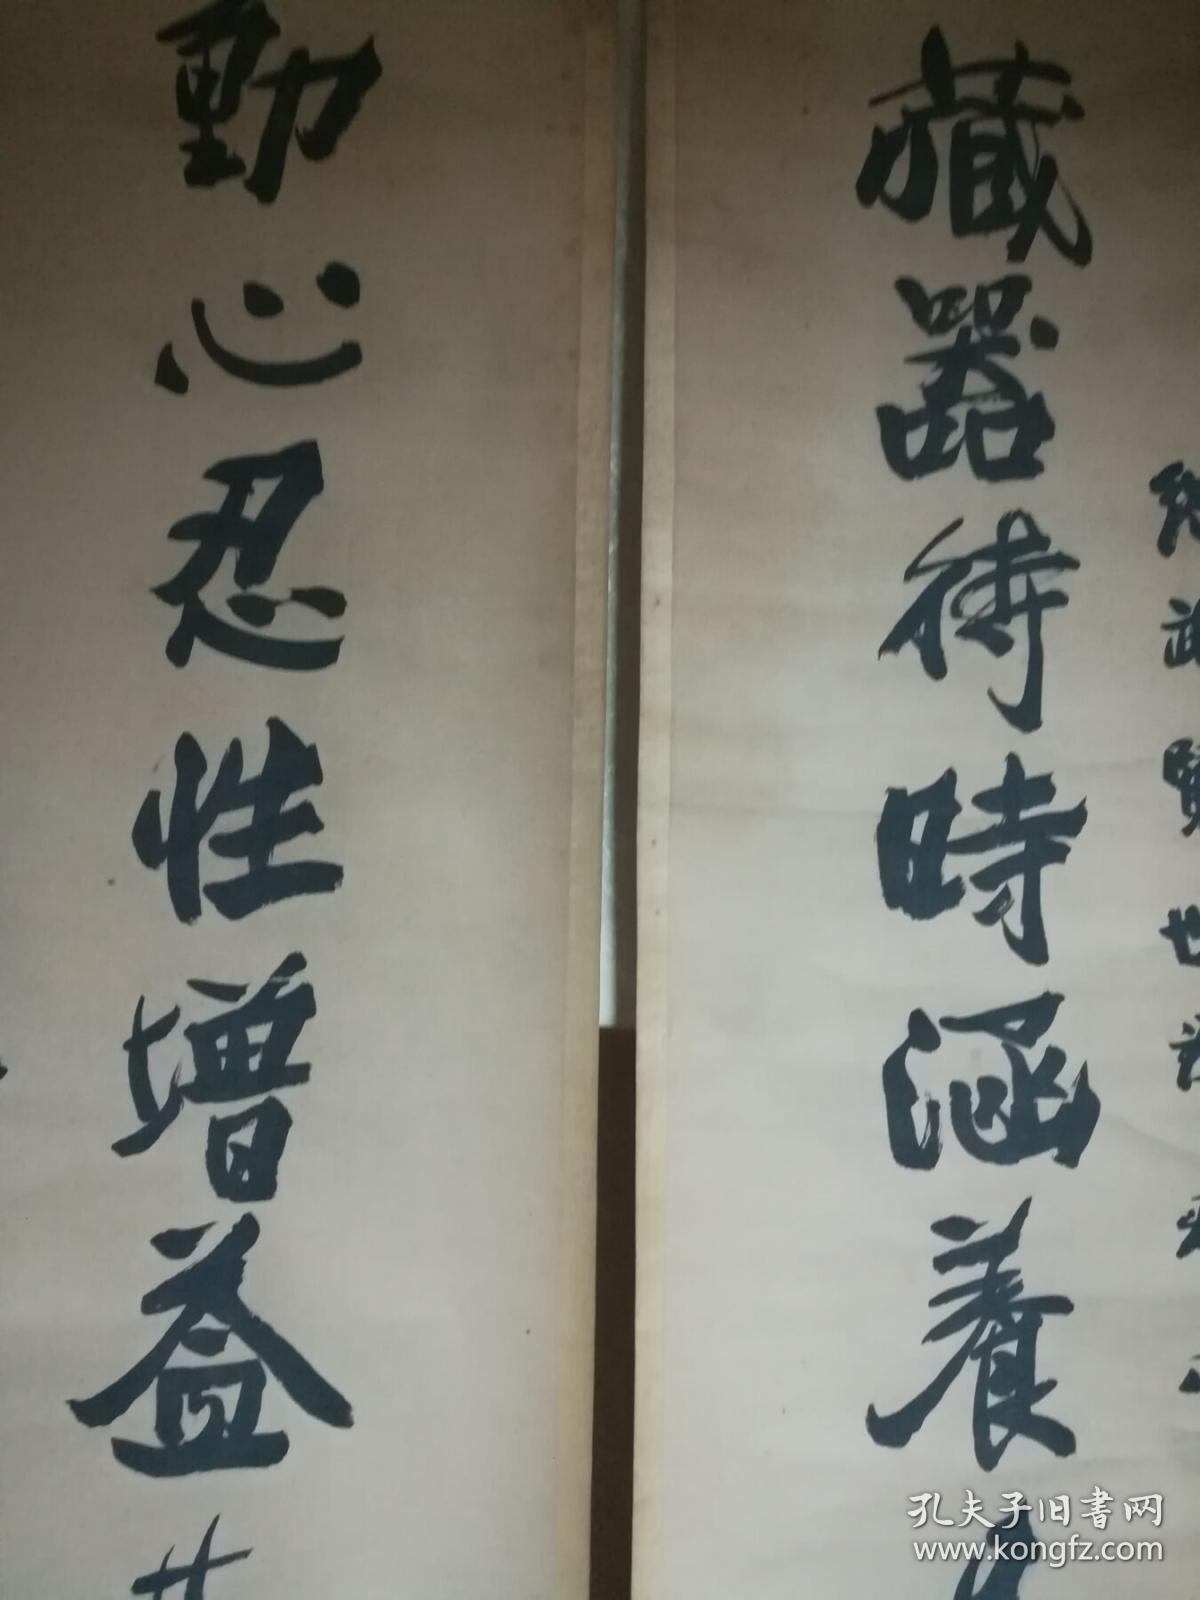 賢世
藏器待時涵養
動心忍性增益
孔夫子旧書网
www.kongfz.com